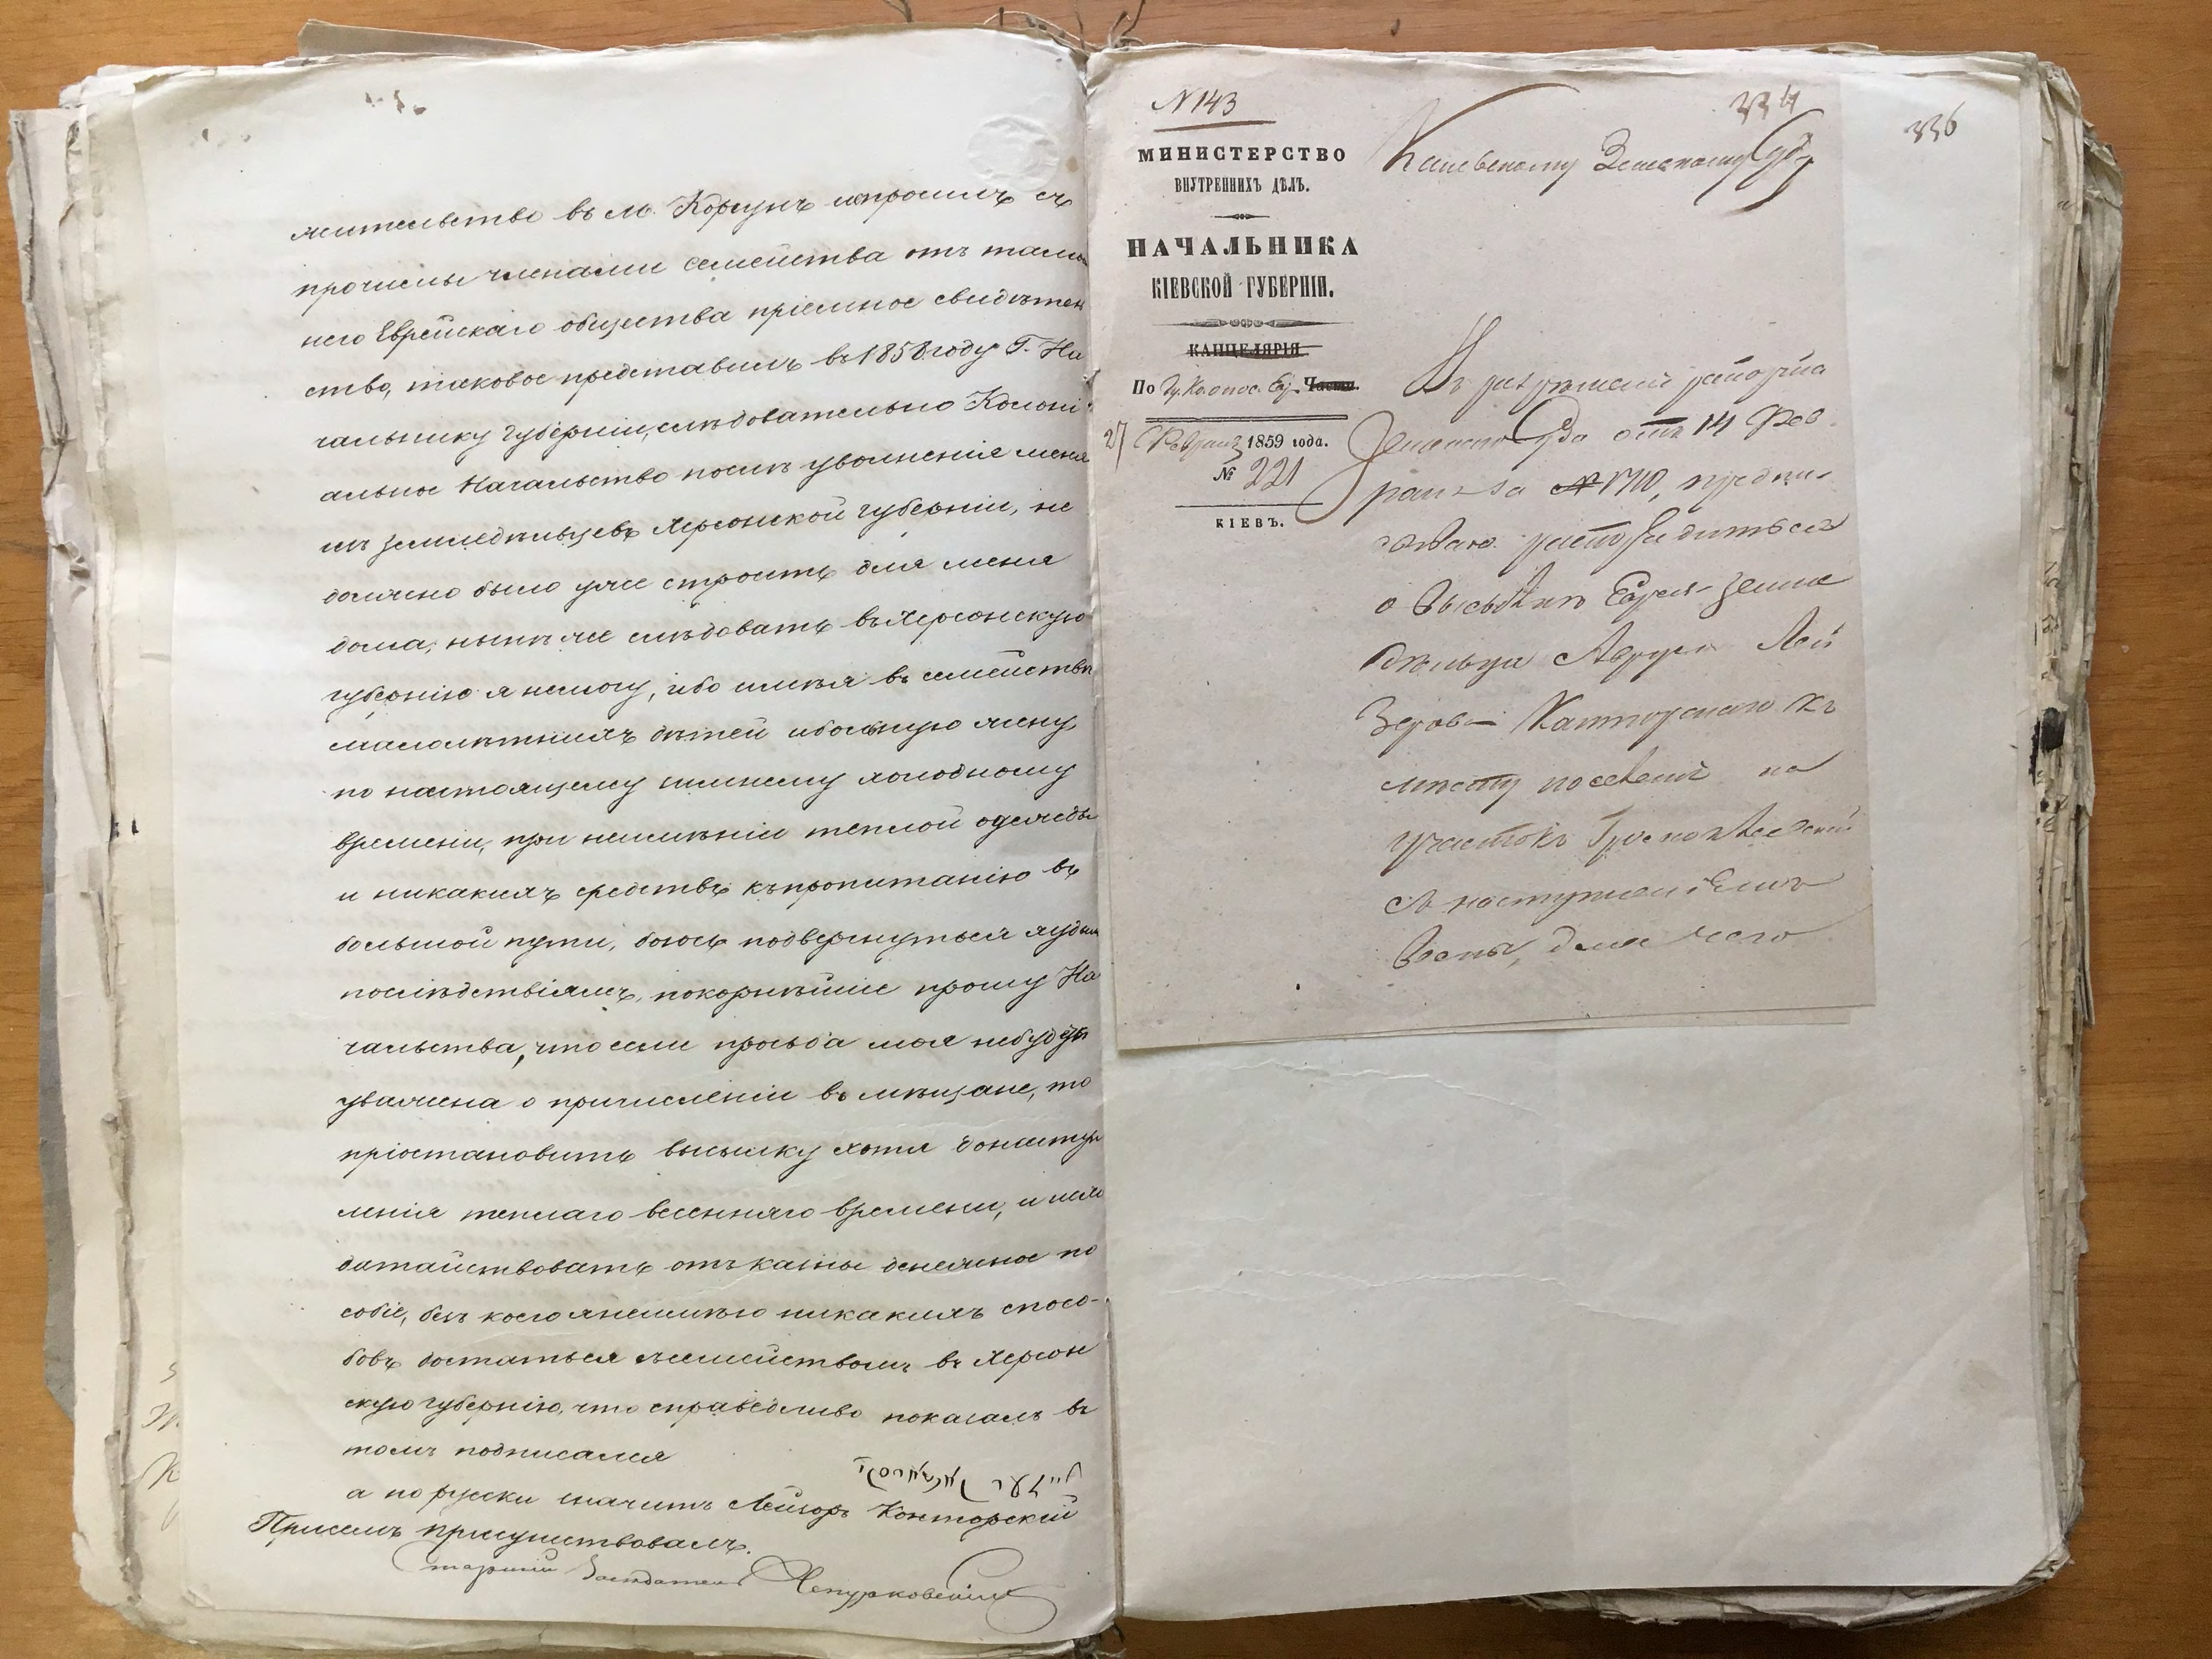 жительство въ м. Корсунъ испросилъ съ
прочими членами семейства отъ тамош
няго Еврейскаго общества пріемное свидѣтель
ство, таковое представилъ въ 1858 году Г. На
чальнику Губерніи, слѣдовательно Колоні
альное Начальство послѣ уволненія меня
изъ земледѣльцевъ Херсонской губерніи, не
должно было уже строить для меня
дома, нынѣ же слѣдовать въ Херсонскую
губернію я немогу, ибо имѣя въ семействѣ
малолѣтнихъ дѣтей и больную жену,
по настоящему зимнему холодному
времени, при неимѣніи теплой одежды
и никакихъ средствъ къ пропитанію въ
большой пути, боюсь подвергнуться худым
послѣдствіямъ, покорнѣйше прошу На
чальства, что если просьба моя небудетъ
уважена о причисленіи въ мѣщане, то
пріостановить высылку хотя до наступ
ленія теплаго весенняго времени, и исхо
датайствовать отъ казны денежное по
собіе, безъ коего я неимѣю никакихъ спосо-
бовъ достаться съ семействомъ въ Херсон
скую губернію, что справедливо показалъ въ
томъ подписался
а по русски значитъ Лейзоръ Конторскій
При семъ присутствовалъ.
Старшій Засѣдатель Чепурковскій
N 143
334
336
МИНИСТЕРСТВО
ВНУТРЕННИХЪ ДѢЛЪ.
НАЧАЛЬНИКА
КІЕВСКОЙ ГУБЕРНІИ.
КАНЦЕЛЯРІЯ
По Части.
27 Февраля 1859 года.
№ 221
КІЕВЪ.
Каневскому Земскому Суду
Въ разрѣшеніе рапорта
Земскаго Суда отъ 14 Фев
раля за № 1710, предпи-
сываю распорядиться
о высылкѣ Еврея-земле
дѣльца Лей
зерова Канторскаго къ
мѣсту поселенія на
участокъ
съ наступленіемъ
весны, для чего